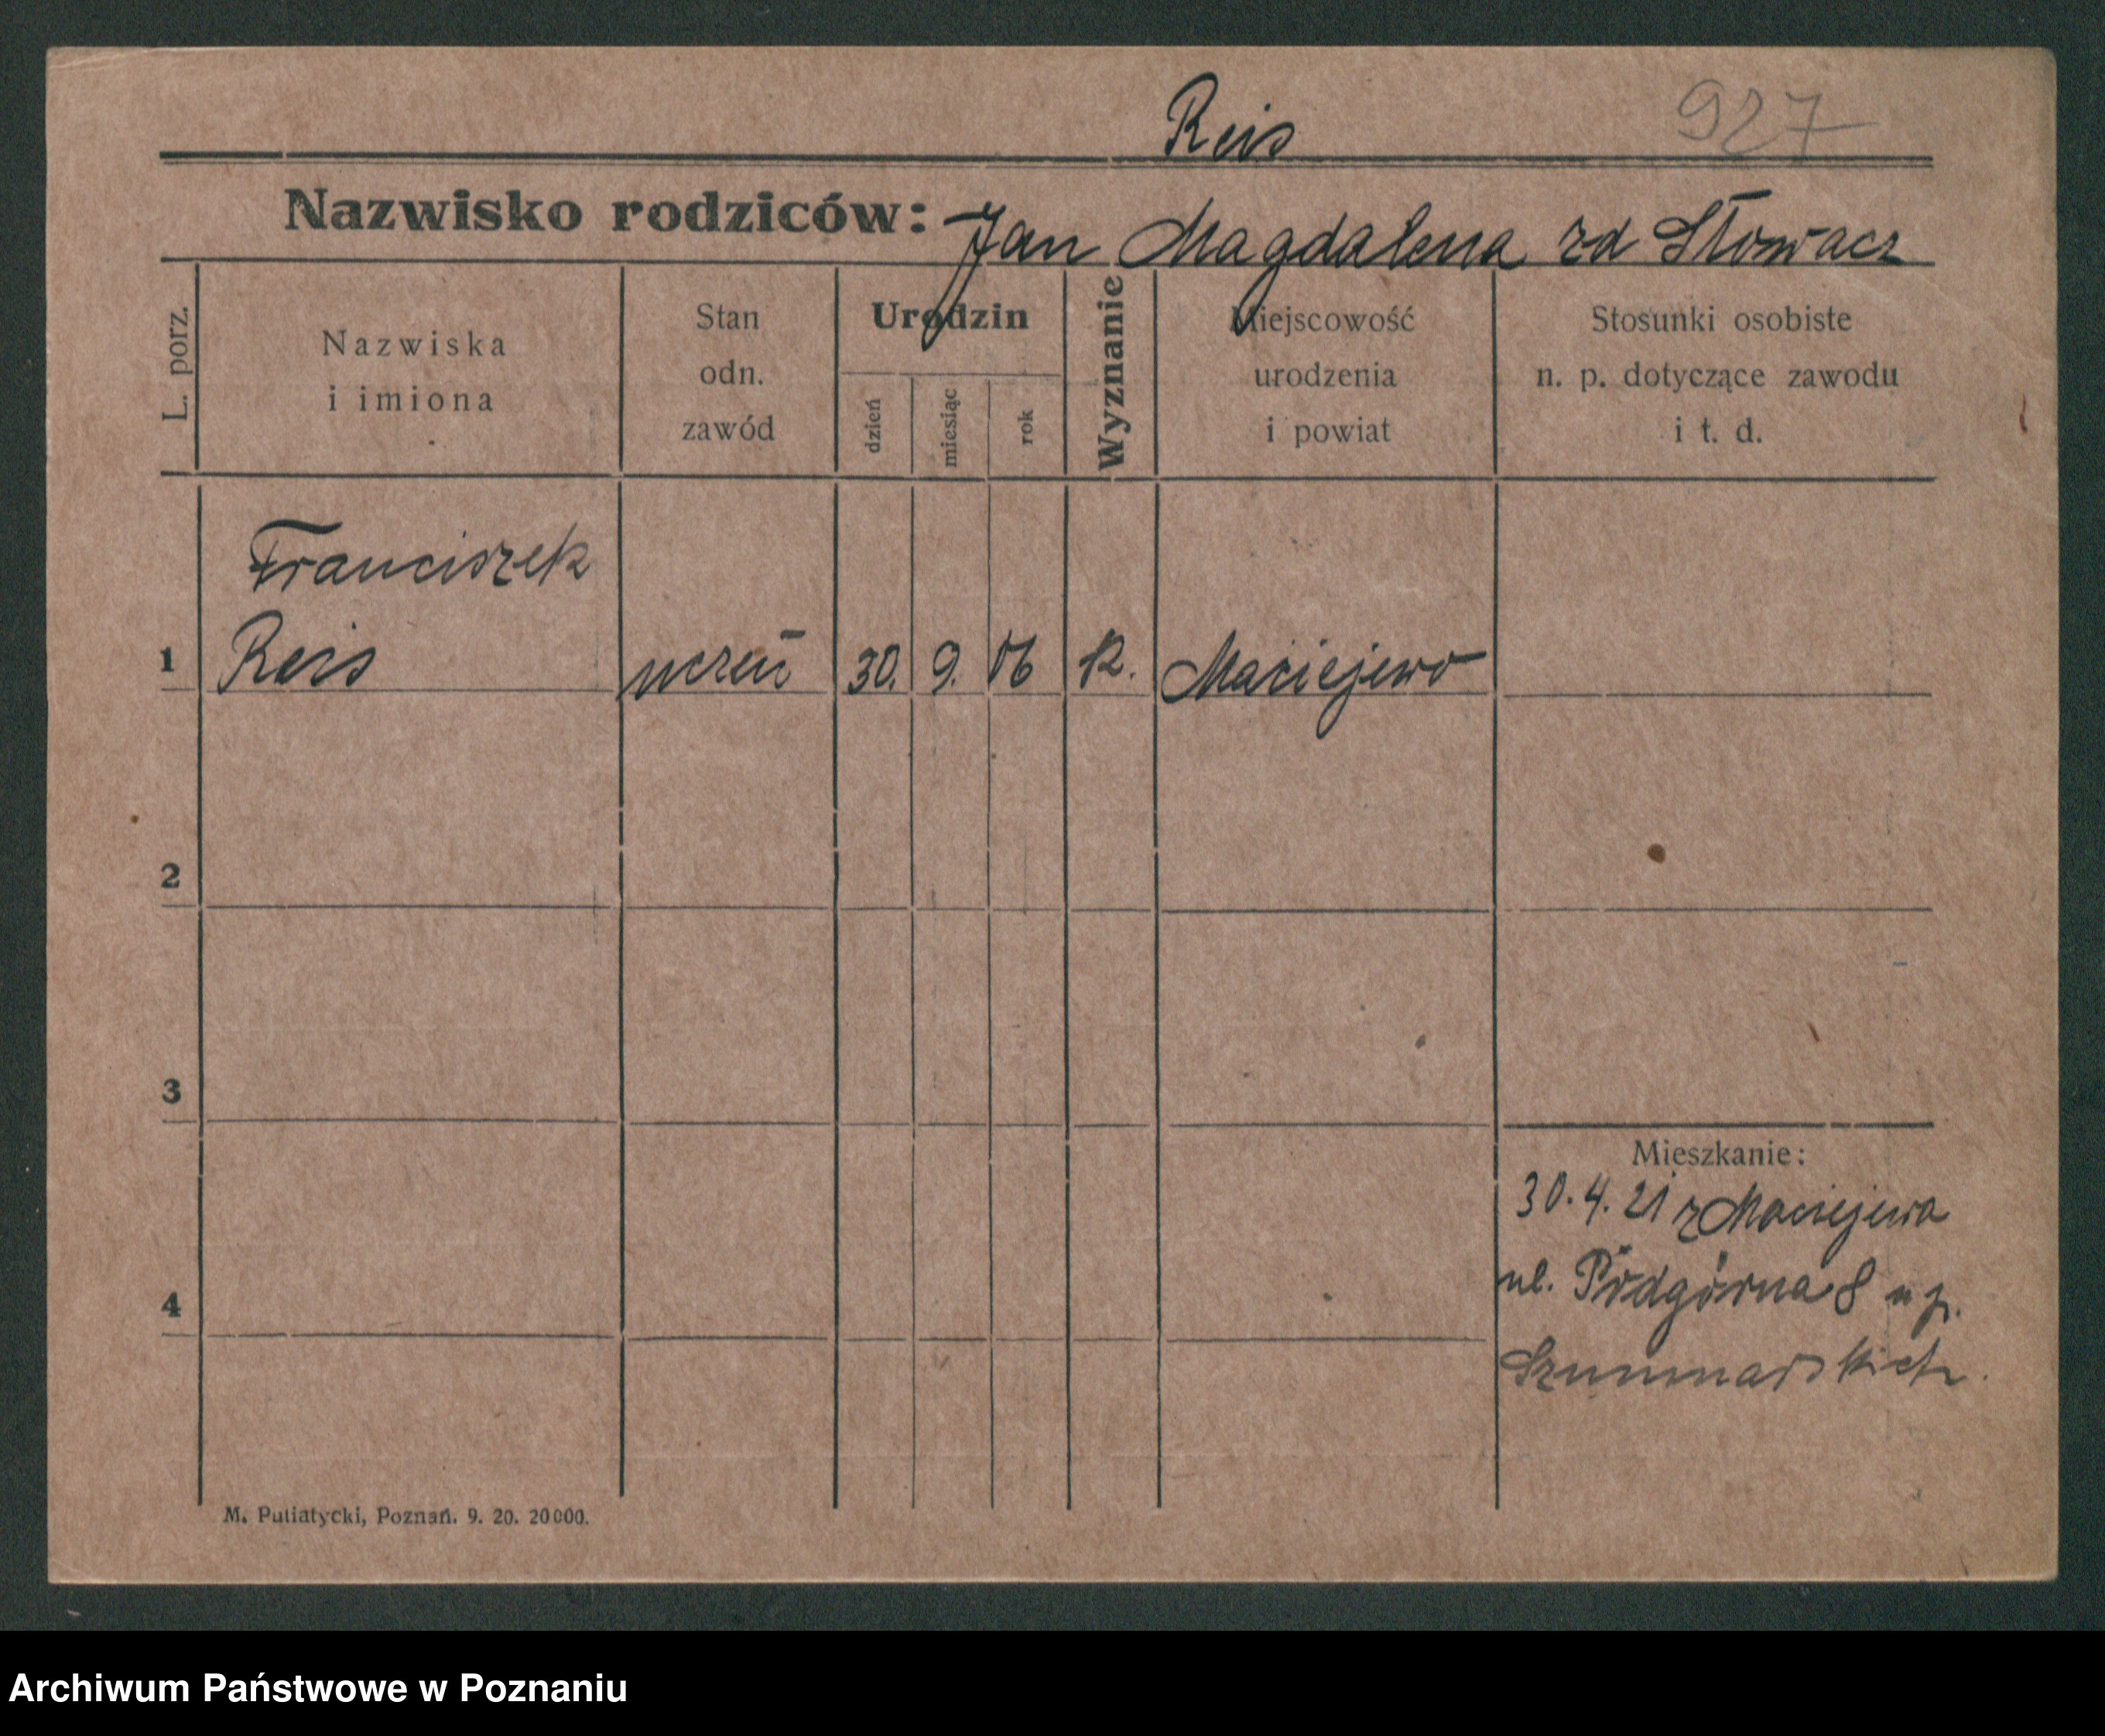 Reis 927
Nazwisko rodziców: Jan Magdalena zd Słowacz
L. porz.
Nazwiska
i imiona
Stan
odn.
zawód
Urodzin
dzień
miesiąc
rok
Wyznanie
Miejscowość
urodzenia
i powiat
Stosunki osobiste
n. p. dotyczące zawodu
i t. d.
Franciszek
1 Reis uczeń 30. 9. 06 k. Maciejewo
2
3
Mieszkanie:
30. 4. 21 z Maciejewa
ul. Podgórna 8 u p.
4
M. Putiatycki, Poznań. 9. 20. 20000.
Archiwum Państwowe w Poznaniu